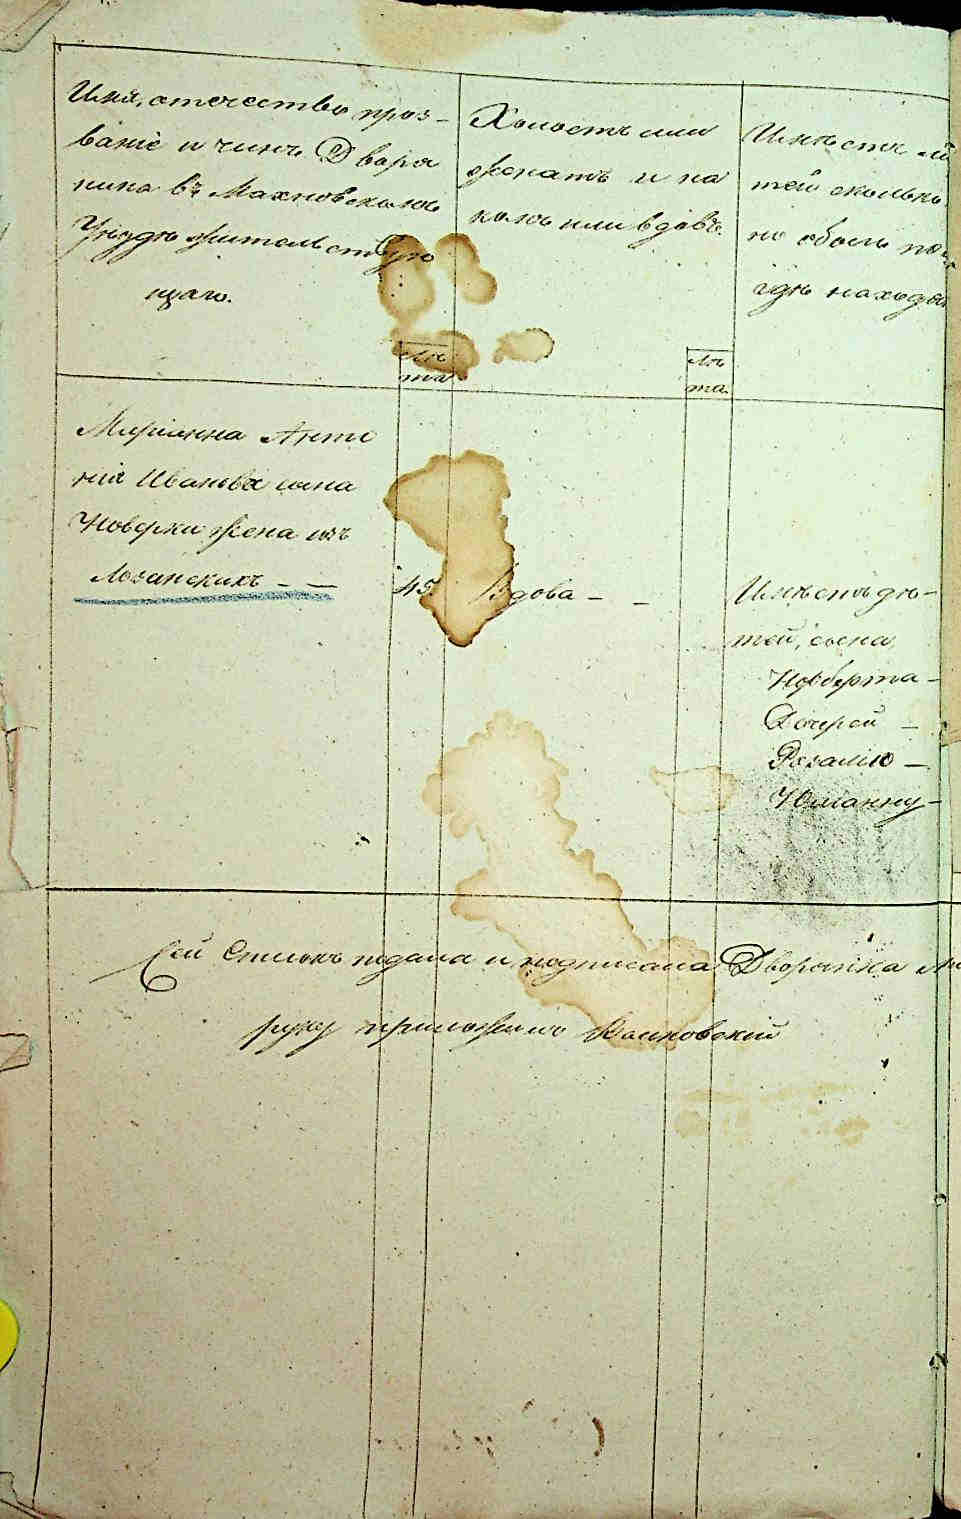 Имя, отечество, проз-
ваніе и чинъ Дворя
нина въ Махновскомъ
Уѣздѣ жительствую
щаго.
Лѣ
та
Холостъ или
женатъ и на
комъ или вдовъ.
Лѣ
та.
Имѣетъ ли
тей сколько
но обоего по
гдѣ находя
Маріанна Анто
нія Иванова сына
жена изъ
Лозанскихъ - -
45.
Вдова - -
Имѣетъ дѣ-
тей, сына
Норберта -
Дочерей -
Розалію -
Юліанну -
Сей Списокъ подала и подписала Дворянка
руку приложилъ